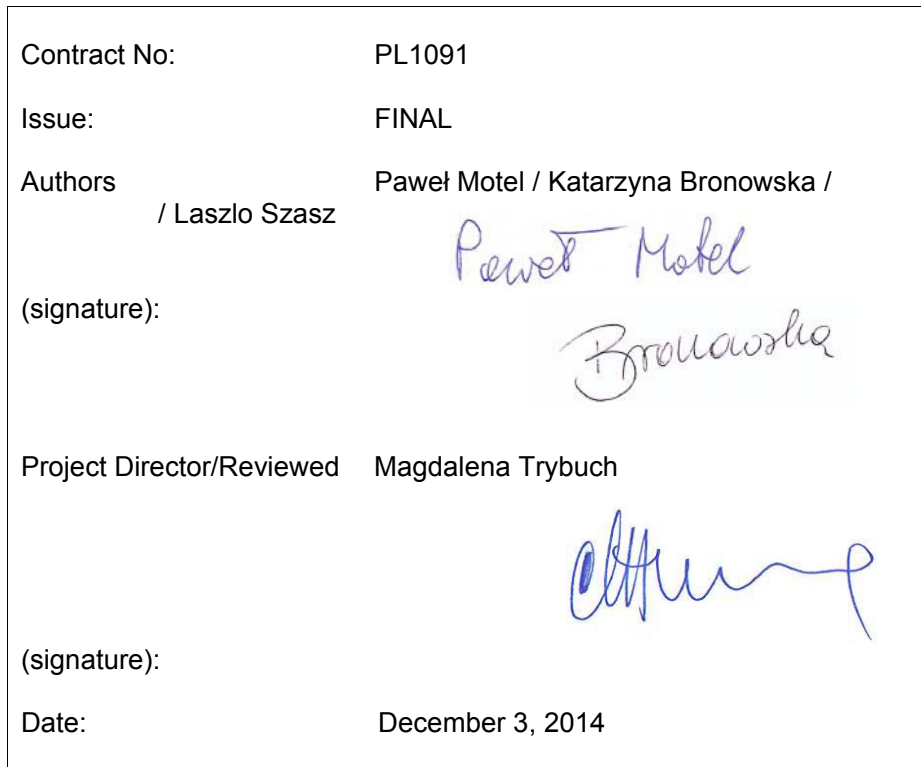 Contract No: PL1091
Issue: FINAL
Authors Paweł Motel / Katarzyna Bronowska /
/ Laszlo Szasz
Paweł Motel
(signature):
Bronowska
Project Director/Reviewed Magdalena Trybuch
(signature):
Date: December 3, 2014